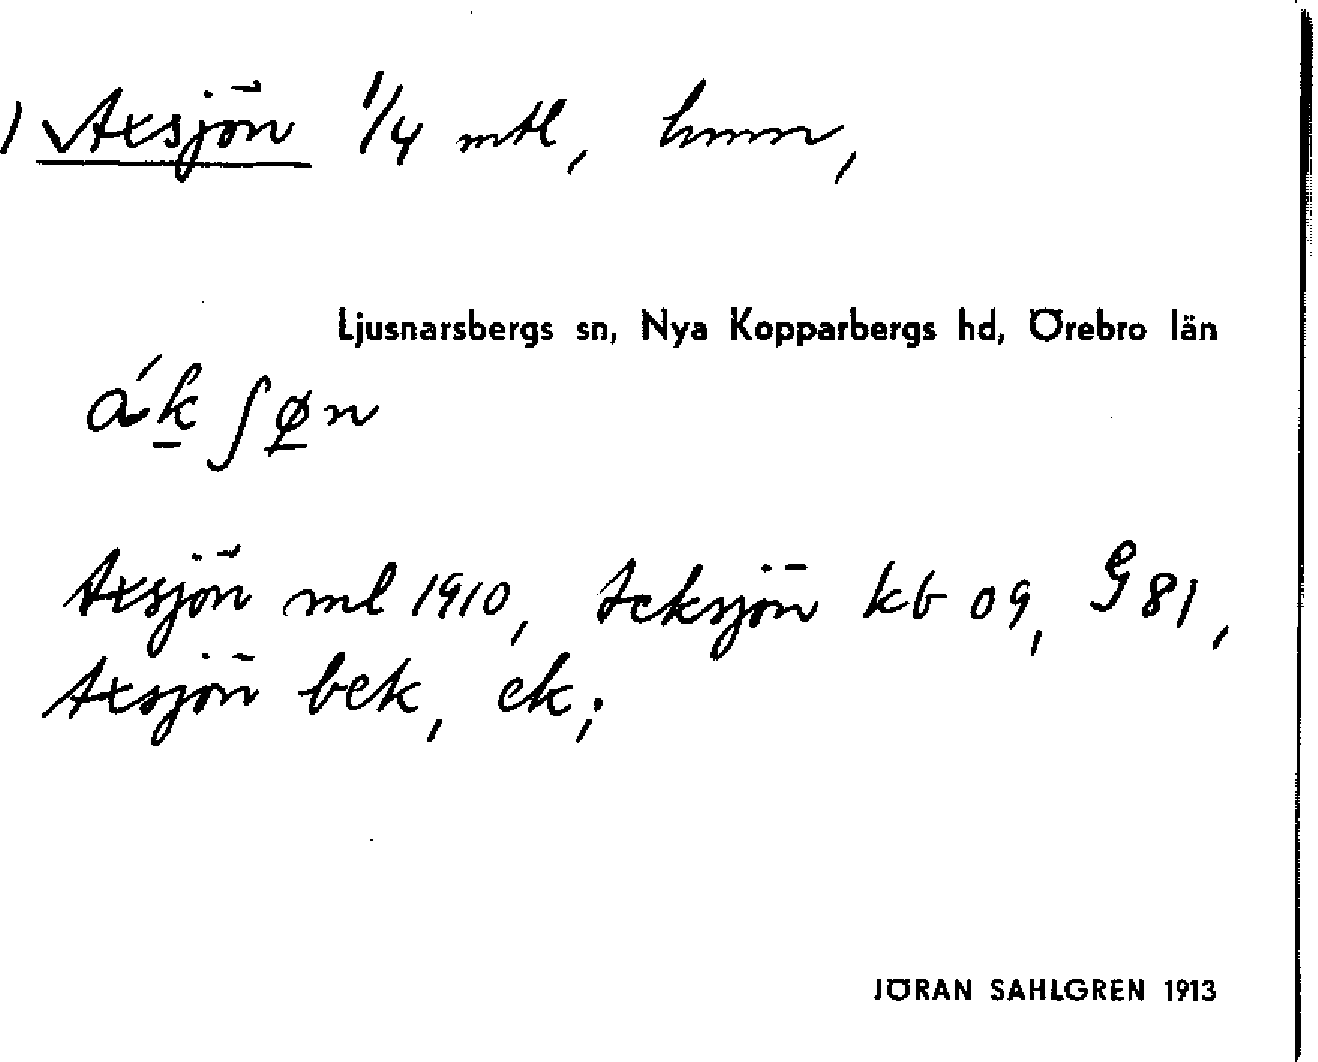 1) Axsjön 1/4 mtl, hmm,
Ljusnarsbergs sn, Nya Kopparbergs hd, Örebro län
ák ʃøn
Axsjön ml 1910, Acksjön kb 09, G 81,
Axsjön bek, ek;
JÖRAN SAHLGREN 1913